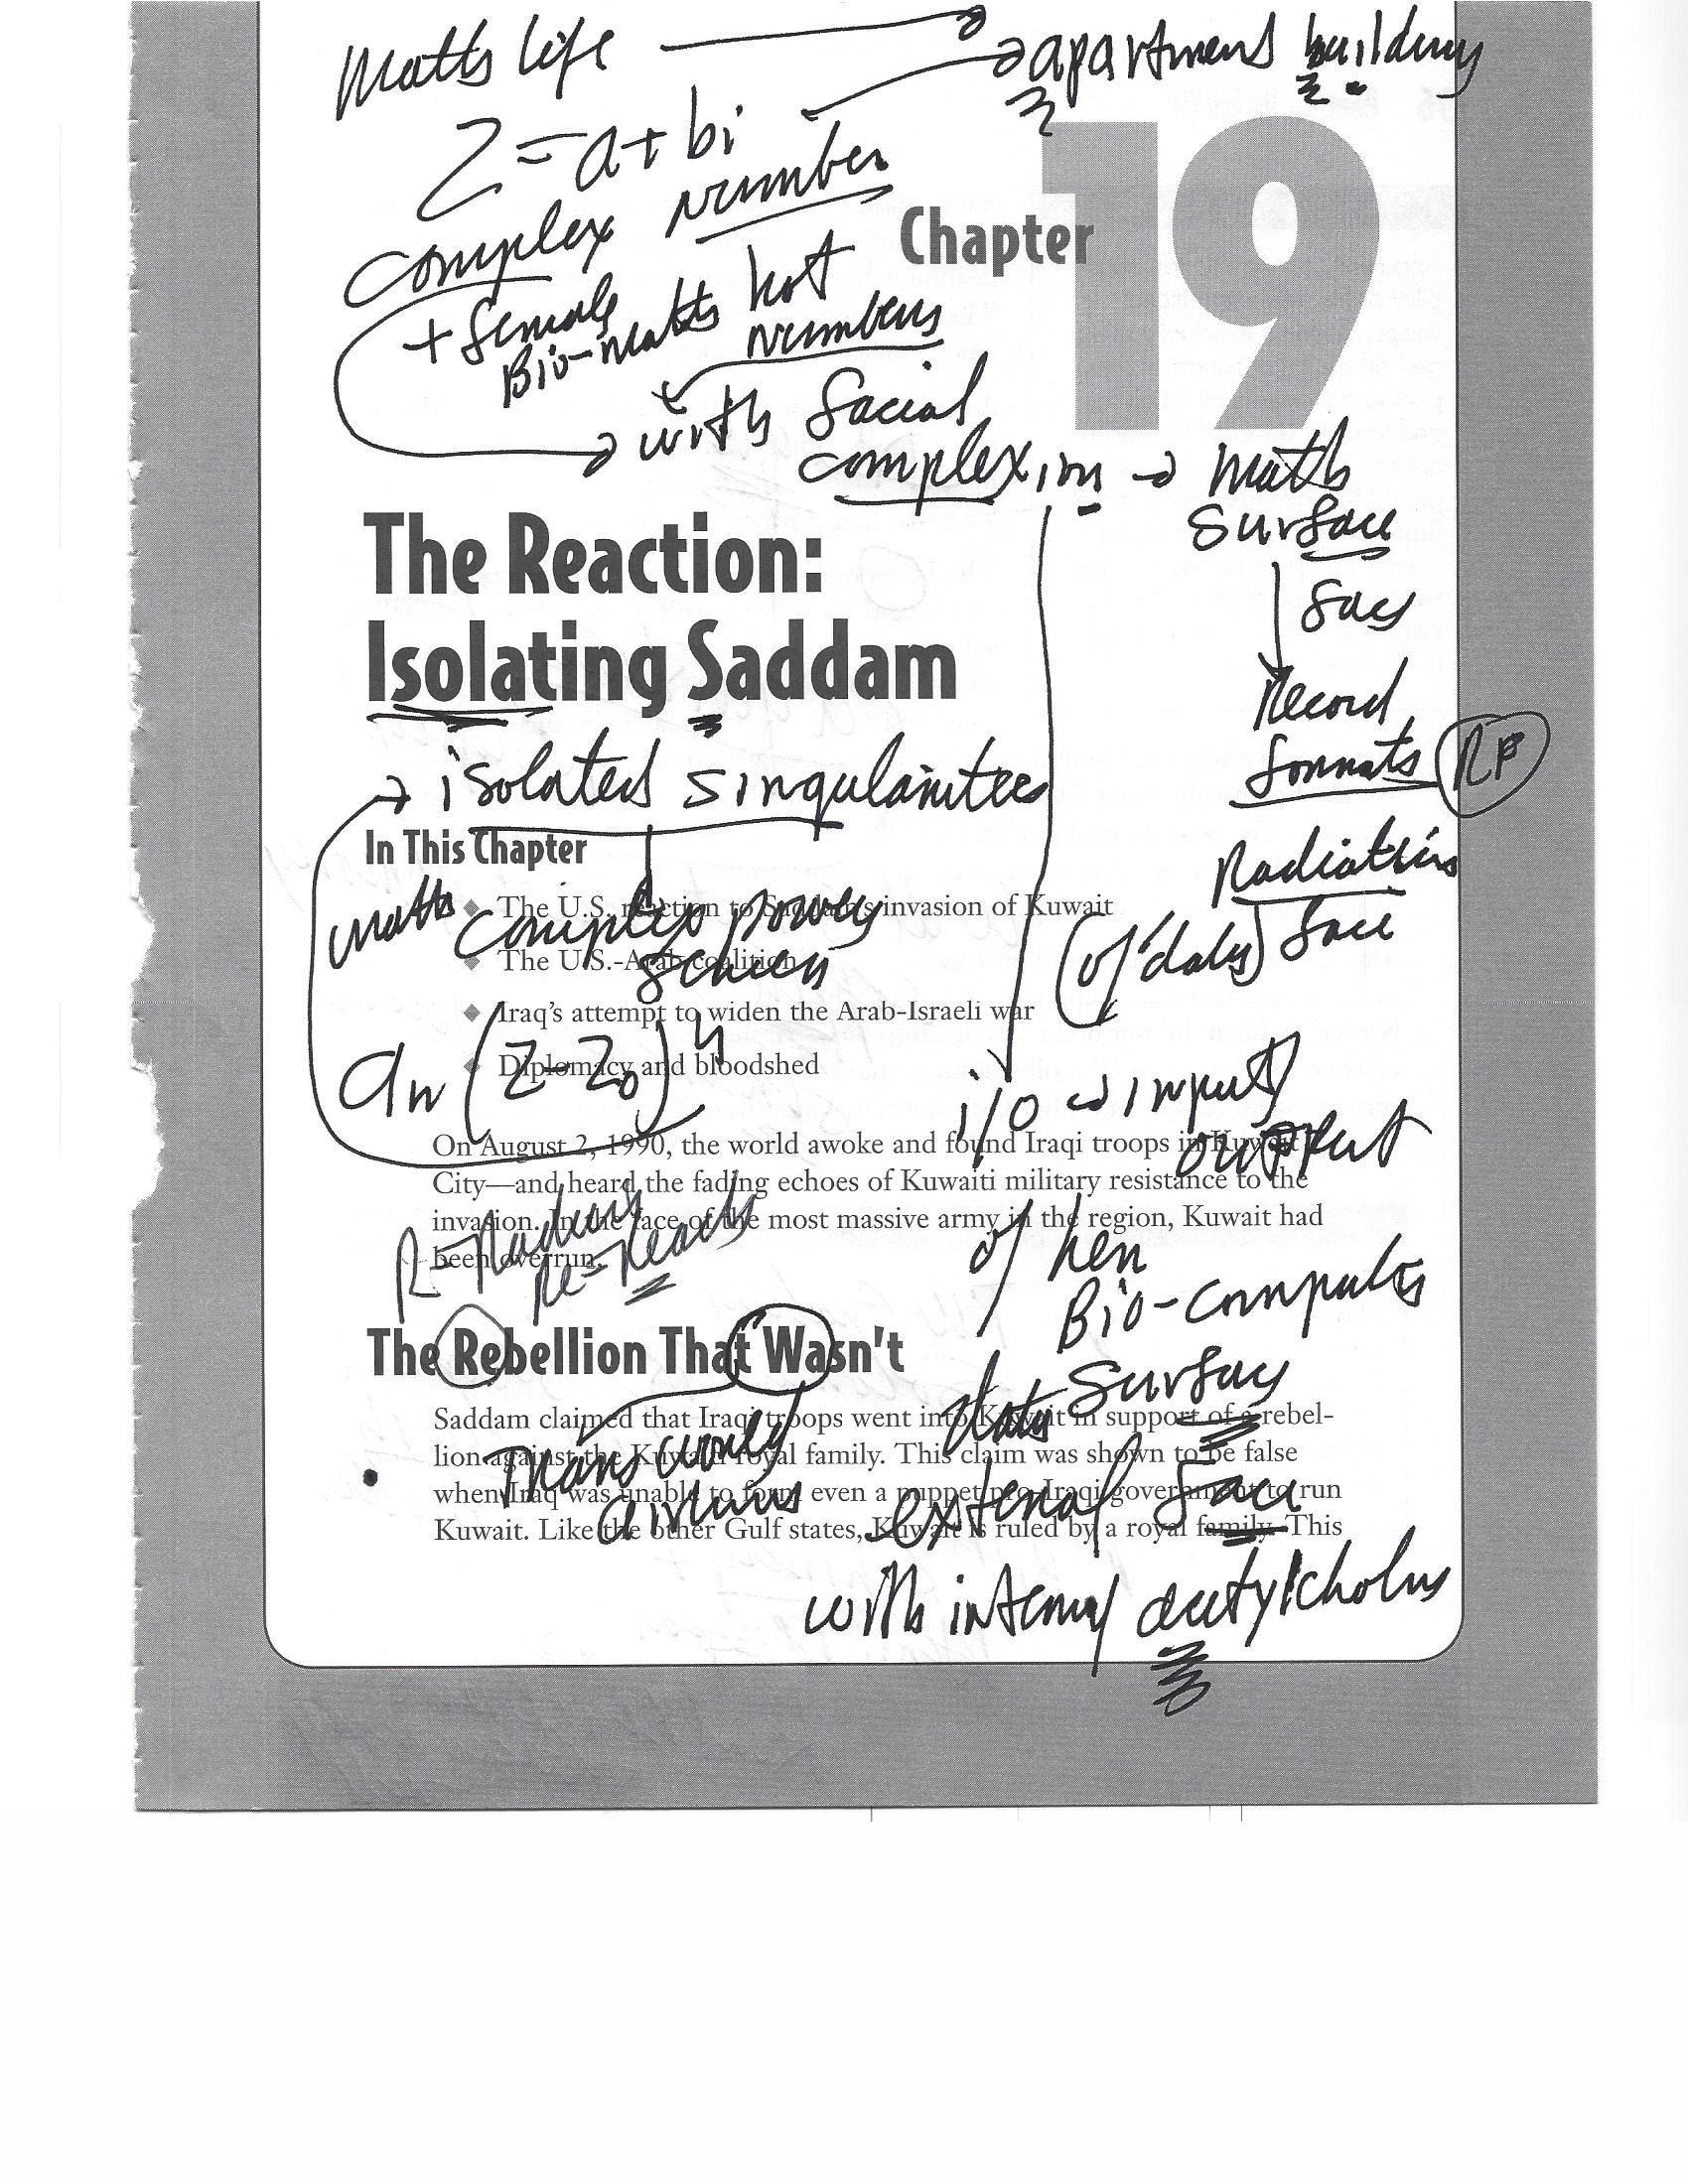 Maths life → apartment building
Z = a + bi
complex number
Chapter 19
+ female
Bio-maths hot
numbers
→ with facial
complexion → math
surface
The Reaction:
Isolating Saddam
face
Record
formats RF
→ isolated singularities
In This Chapter
Radiation
face
(of data)
math complex power
series
◆ The U.S. reaction to Saddam's invasion of Kuwait
◆ The U.S.-Arab coalition
◆ Iraq's attempt to widen the Arab-Israeli war
◆ Diplomacy and bloodshed
an (Z - Z0)n
i/o → input
output
On August 2, 1990, the world awoke and found Iraqi troops in Kuwait
City—and heard the fading echoes of Kuwaiti military resistance to the
invasion. In the face of the most massive army in the region, Kuwait had
been overrun.
R = Radius
Re = Reads
of her
Bio-computer
data surface
The Rebellion That Wasn't
Saddam claimed that Iraqi troops went into Kuwait in support of a rebel-
lion against the Kuwaiti royal family. This claim was shown to be false
when Iraq was unable to form even a puppet pro-Iraqi government to run
Kuwait. Like the other Gulf states, Kuwait is ruled by a royal family. This
Trans World
airlines
external face
with internal acetylcholine